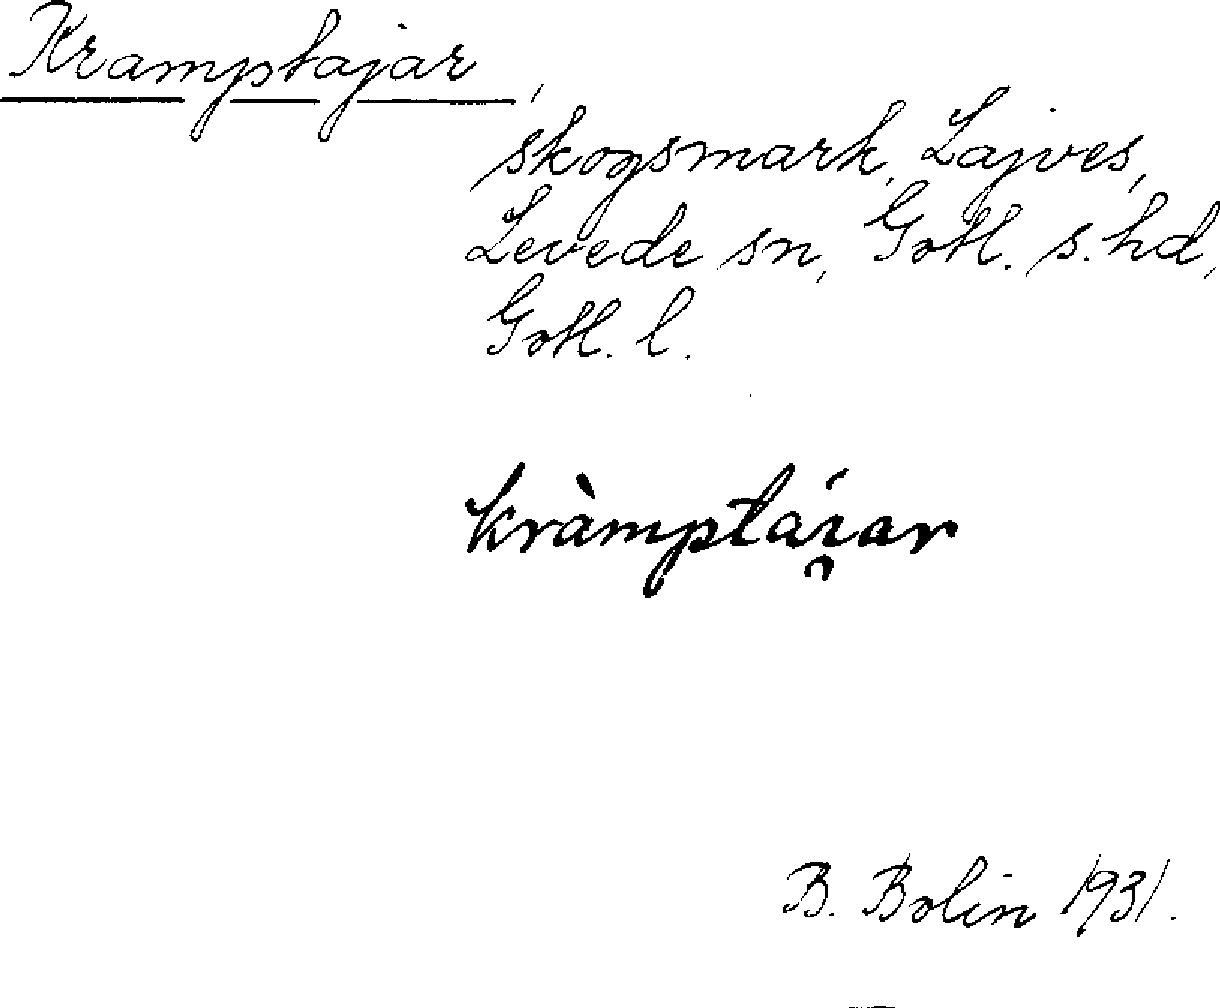 Kramptajar,
skogsmark, Lajves,
Levede sn, Gotl. s. hd,
Gotl. l.
kràmptái̯ar
B. Bolin 1931.